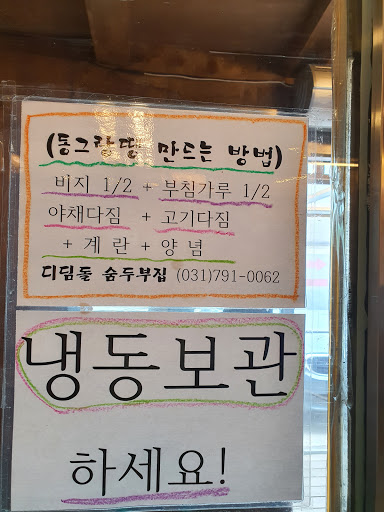 (동그랑땡 만드는 방법)
비지 1/2 + 부침가루 1/2
야채다짐 + 고기다짐
+ 계란 + 양념
디딤돌 숨두부집 (031)791-0062
냉동보관
하세요!